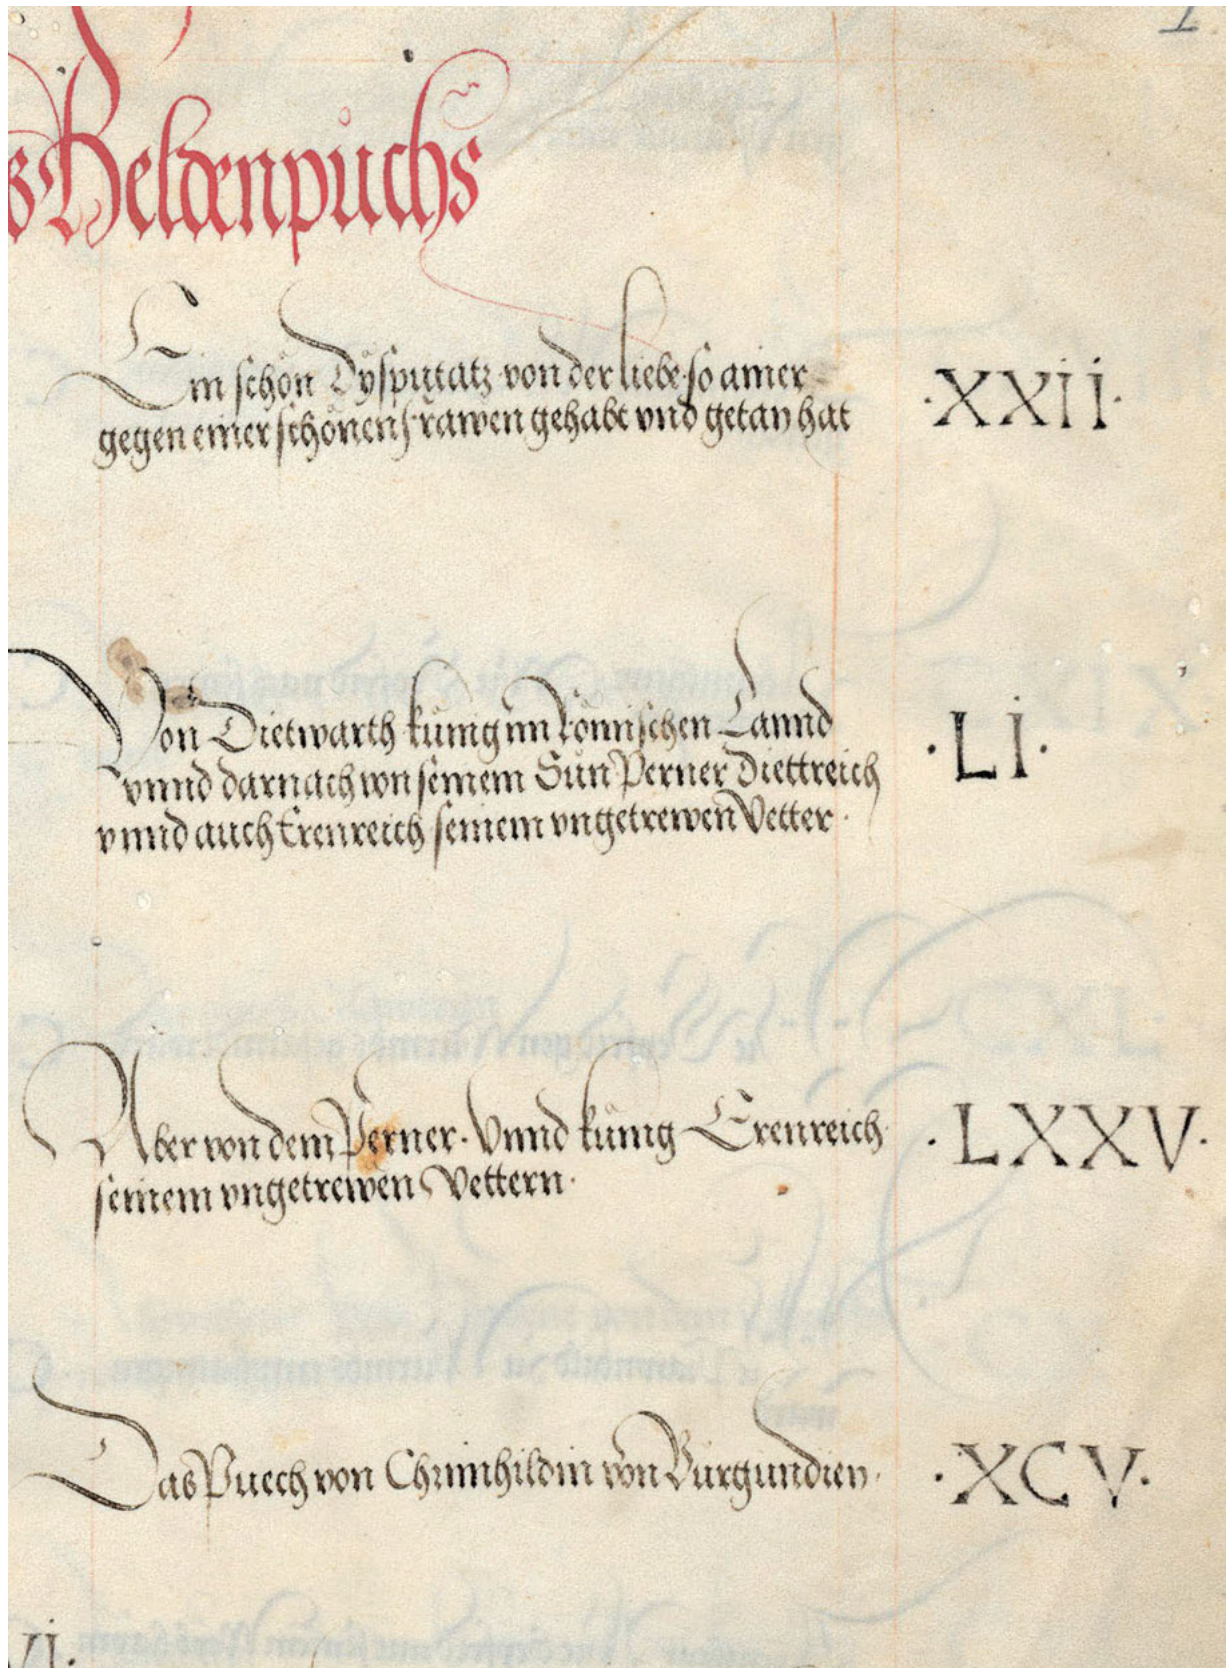 Heldenpuchs
Ein schon Dysputatz von der liebe so ainer
gegen einer schönen frawen gehabt vnd getan hat
·XXII·
Von Dietwarth künig im Römischen Lannd
vnnd darnach von seinem Sün Perner Diettreich
vnnd auch Erenreich seinem vngetrewen Vetter·
·LI·
Aber von dem Perner· Vnnd künig Erenreich
seinem vngetrewen Vettern·
·LXXV·
Das Puech von Chrimhildin von Burgundien·
·XCV·